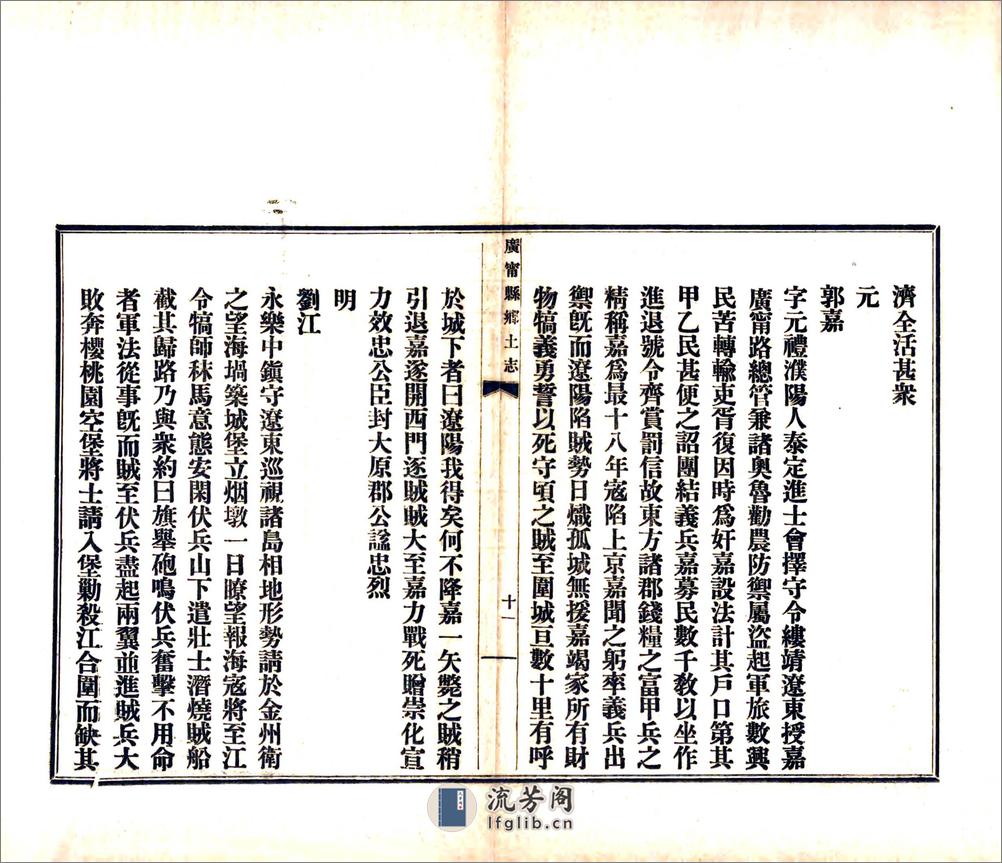 濟全活甚衆
元
郭嘉
字元禮濮陽人泰定進士會擇守令綏靖遼東授嘉
廣甯路總管兼諸奧魯勸農防禦屬盜起軍旅數興
民苦轉輸吏胥復因時爲奸嘉設法計其戶口第其
甲乙民甚便之詔團結義兵嘉募民數千敎以坐作
進退號令齊賞罰信故東方諸郡錢糧之富甲兵之
精稱嘉爲最十八年寇陷上京嘉聞之躬率義兵出
禦旣而遼陽陷賊勢日熾孤城無援嘉竭家所有財
物犒義勇誓以死守頃之賊至圍城亘數十里有呼
廣甯縣鄉土志
十一
於城下者曰遼陽我得矣何不降嘉一矢斃之賊稍
引退嘉遂開西門逐賊賊大至嘉力戰死贈崇化宣
力效忠公臣封大原郡公諡忠烈
明
劉江
永樂中鎭守遼東巡視諸島相地形勢請於金州衛
之望海堝築城堡立烟墩一日瞭望報海寇將至江
令犒師秣馬意態安閑伏兵山下遣壯士潛燒賊船
截其歸路乃與衆約曰旗舉砲鳴伏兵奮擊不用命
者軍法從事旣而賊至伏兵盡起兩翼並進賊兵大
敗奔櫻桃園空堡將士請入堡勦殺江合圍而缺其
流芳阁
lfglib.cn